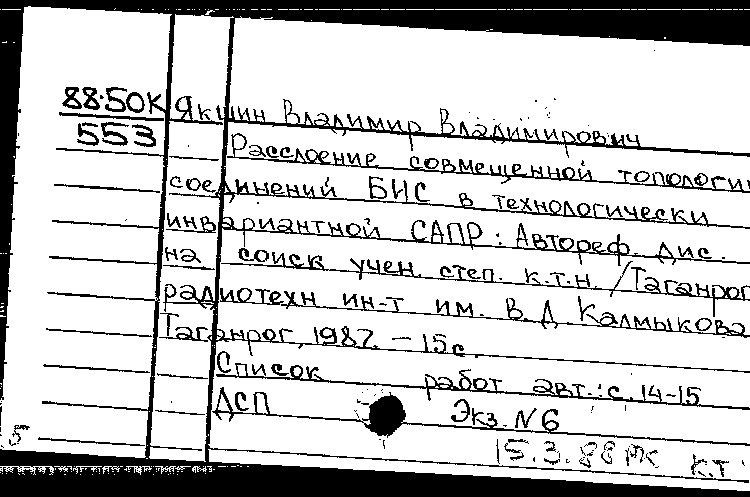 88-50К Якшин, Владимир Владимирович
553
Расслоение совмещенной топологи
соединений БИС в технологически
инвариантной САПР: Автореф. дис.
на соиск учен. степ. к.т.н. /Таганрог
радиотехн ин-т им. В.Д Калмыкова
Таганрог, 1987. - 15 с.
Список работ авт.: с. 14-15
ДСП Экз. N 6
5 15.3.88 РК к.т